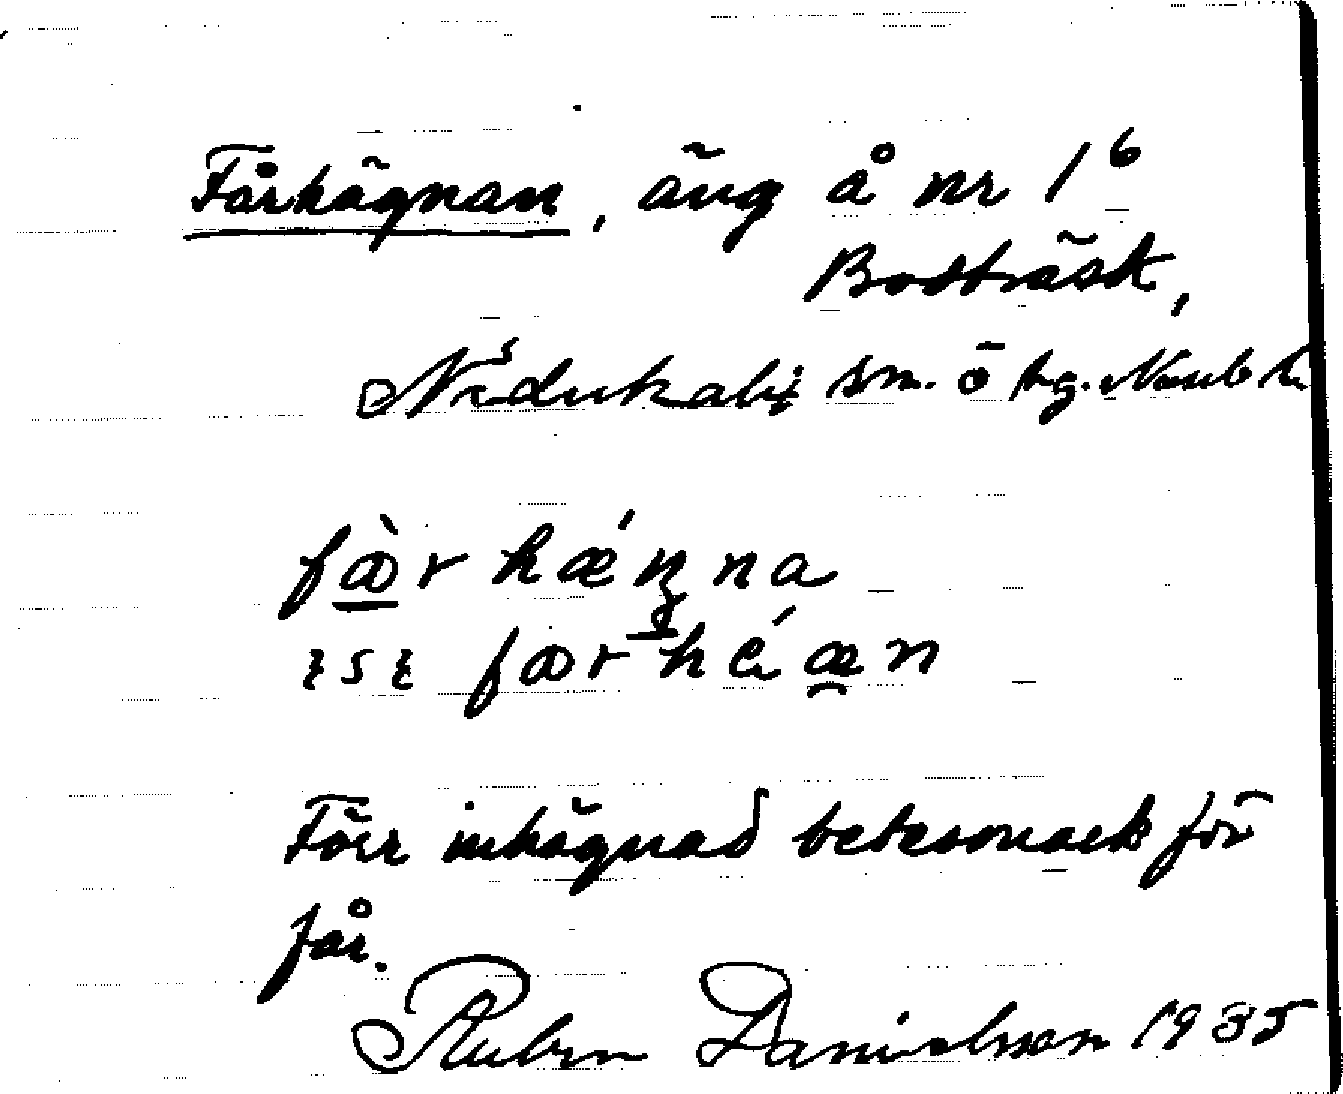 Fårhägnan, äng å nr 1⁶
Bodträsk,
Nederkalix sn. ö
fæ̀r hǽŋna
fær héæn
Förr inhägnad betesmark för
får.
Ruben Danielsson 1935